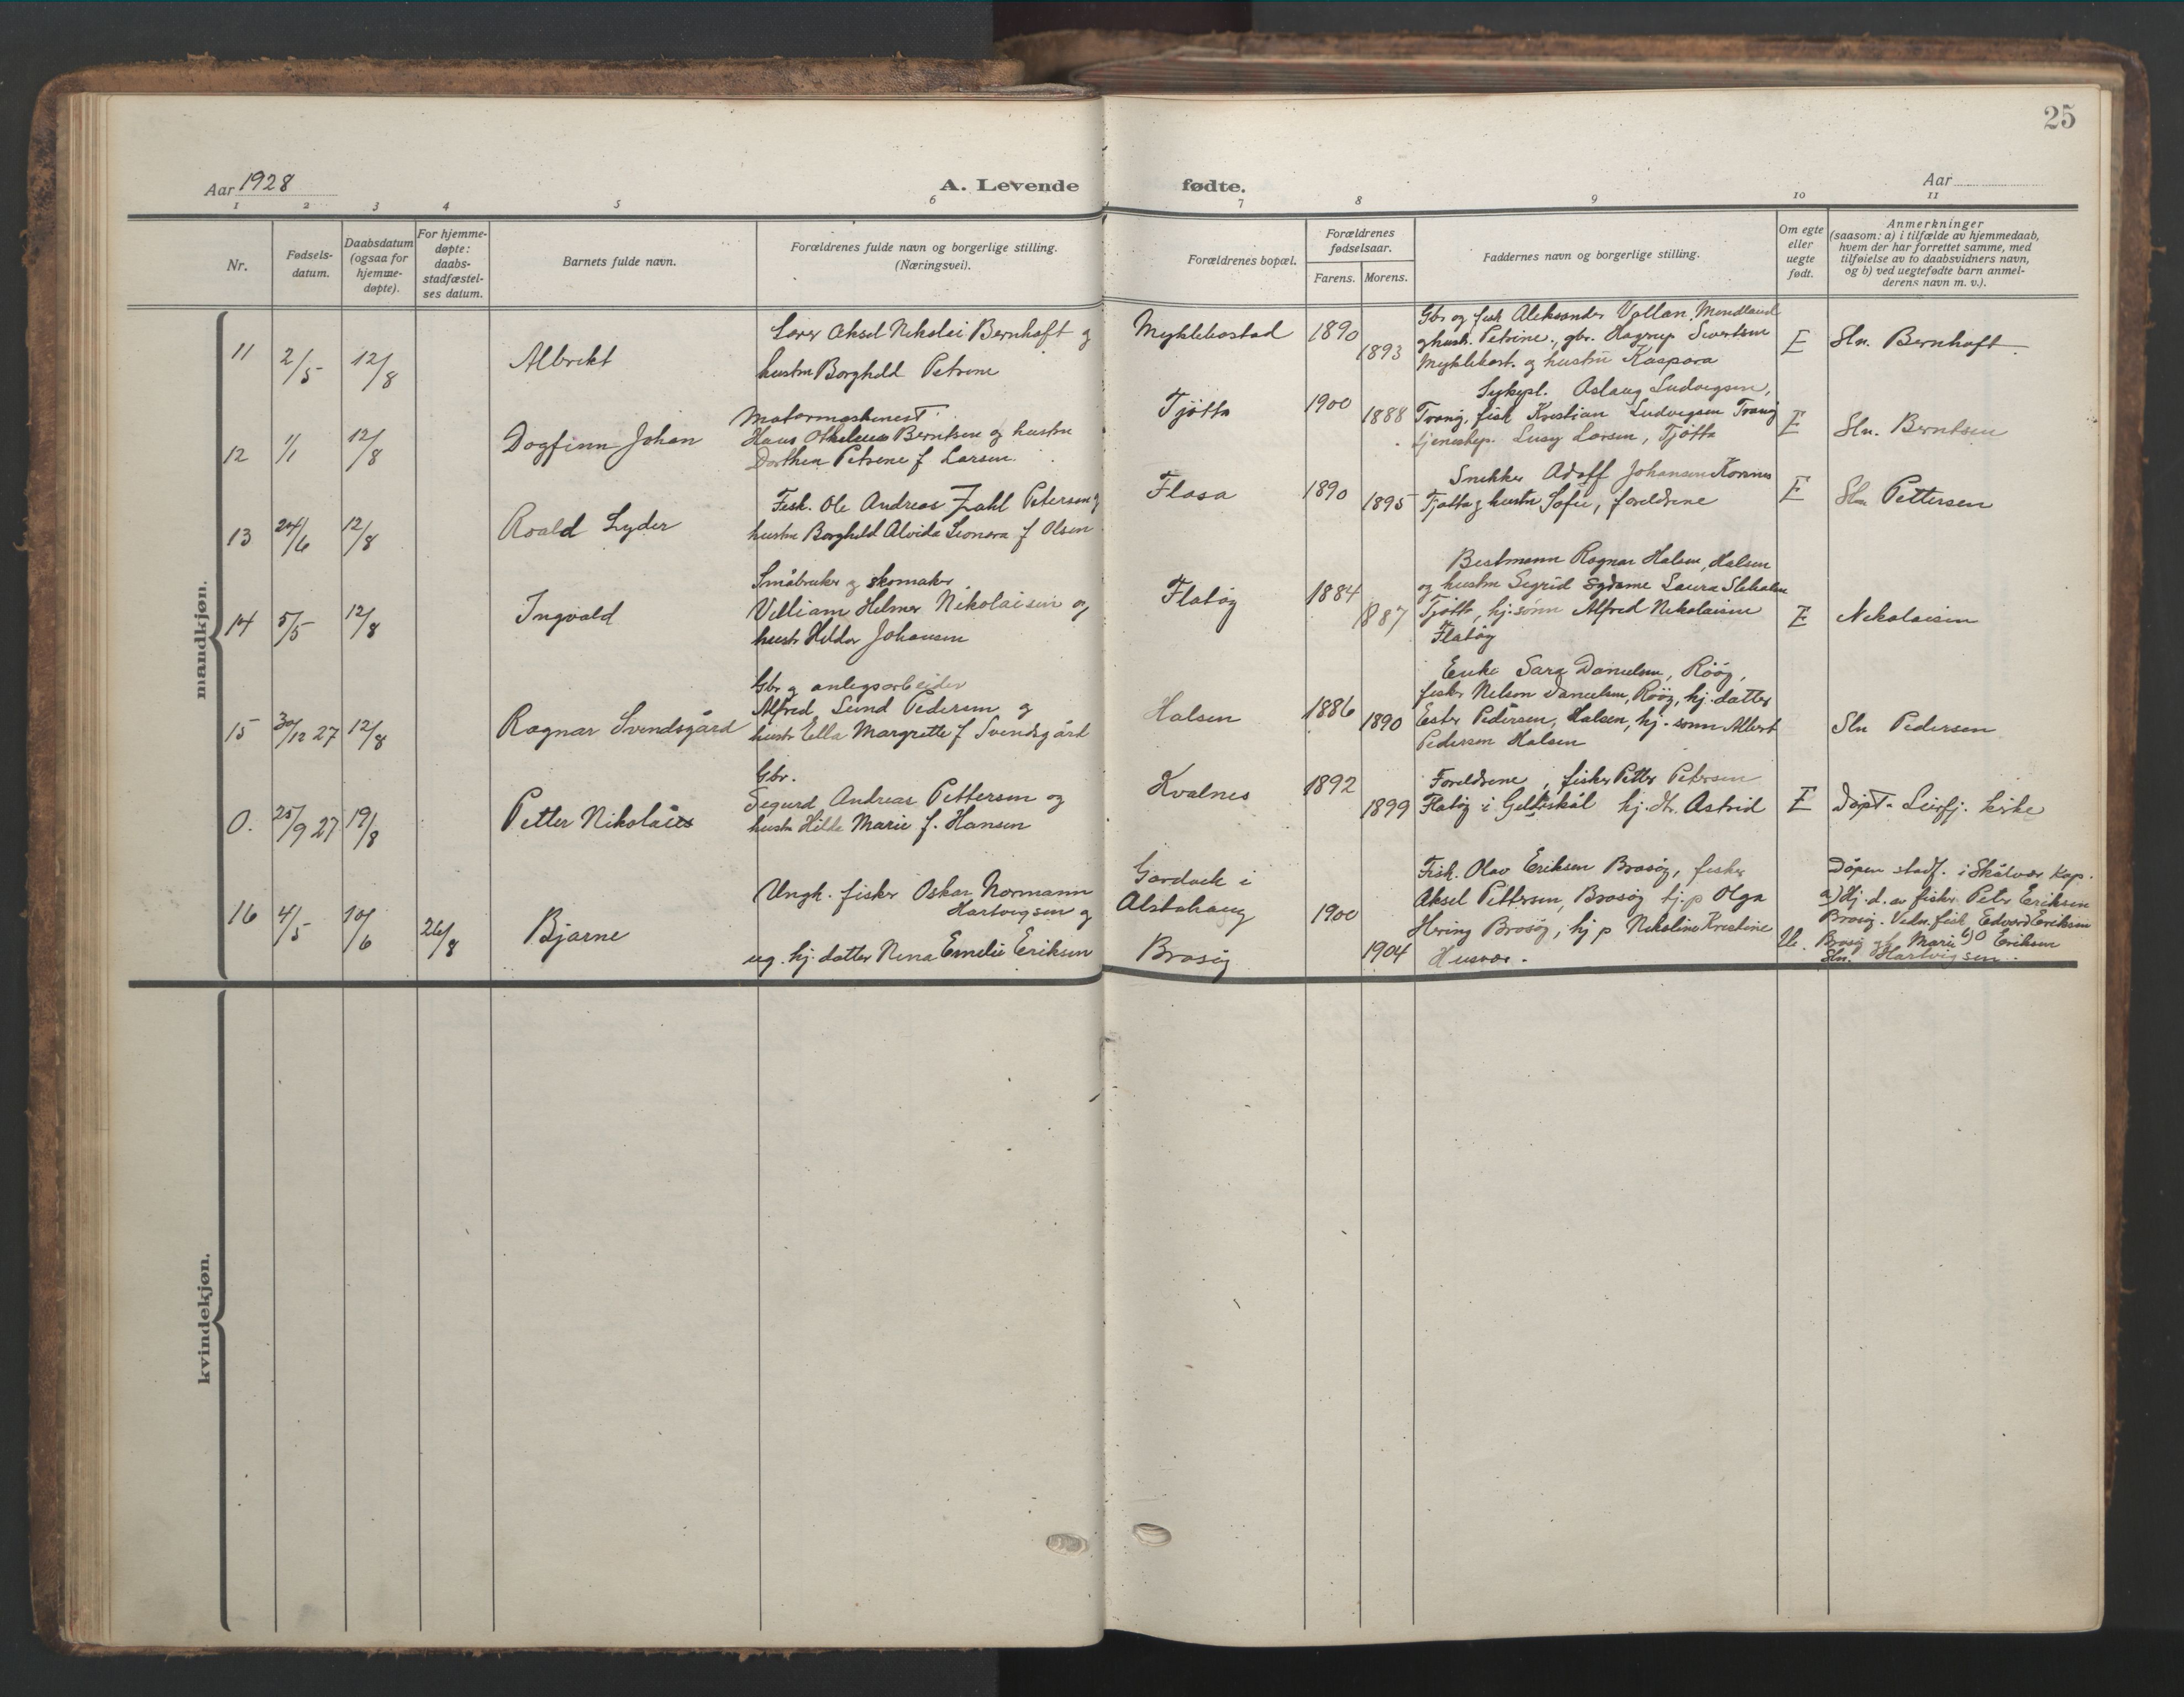 25
Aar 1928
A. Levende fødte.
Aar
1 2 3 4 5 6 7 8 9 10 11
Nr.
Fødsels-
datum.
Daabsdatum
(ogsaa for
hjemme-
døpte).
For hjemme-
døpte:
daabs-
stadfæstel-
ses datum.
Barnets fulde navn.
Forældrenes fulde navn og borgerlige stilling.
(Næringsvei).
Forældrenes bopæl.
Forældrenes
fødselsaar.
Farens. Morens.
Faddernes navn og borgerlige stilling.
Om egte
eller
uegte
født.
Anmerkninger
(saasom: a) i tilfælde av hjemmedaab,
hvem der har forrettet samme, med
tilføielse av to daabsvidners navn,
og b) ved uegtefødte barn anmel-
derens navn m. v.).
mandkjøn.
11 2/5 12/8
Albrikt
Lærer Aksel Nikolai Bernhoft og
hustru Borghild Petrine
Myklebostad
1890
1893
Gbr og fisk Aleksander Vollan, Mindland
og hust. Petrine, gbr. Hagrup Sivertsen
Myklebost. og hustru Kaspara
E
Sln. Bernhoft
12 1/1 12/8
Dagfinn Johan
Motormaskinest
Hans Othelius Berntsen og hustru
Dorthea Petrine f Larsen.
Tjötta
1900
1888
Sykepl. Aslaug Ludvigsen,
Tranø, fisk Kristian Ludvigsen Tranø
tjenestep. Lusy Larsen, Tjøtta
E
Sln. Berntsen
13 24/6 12/8
Roald Lyder
Fisk. Ole Andreas Zahl Petersen og
hustru Borghild Alvida Leonora f Olsen
Flasa
1890
1895
Snekker Adolf Johansen
Tjøtta og hustru Sofie, foreldrene
E
Sln Pettersen
14 5/5 12/8
Ingvald
Småbruker og skomaker
Villiam Helmer Nikolaisen og
hustr Hilda Johansen
Flatøy
1884
1887
Bestmann Ragnar Halsen, Halsen
og hustru Sigrid Laura
Tjøtta, hj. sønn Alfred Nikolaisen
Flatøy
E
Nikolaisen
15 30/12 27 12/8
Ragnar Svendsgård
Gbr og anlegsarbeider
Alfred Lund Pedersen og
hustr Ella Margrette f Svendsgård
Halsen
1886
1890
Enke Sara Danielsen, Röög,
fisker Nelson Danielsen, Röög, hj. datter
Ester Pedersen, Halsen, hj. sønn Albert
Pedersen Halsen
Sln Pedersen
0. 25/9 27 19/8
Petter Nikolai
Gbr.
Sigurd Andreas Pettersen og
hustr Hilda Marie f. Hansen
Kvalnes
1892
1899
Foreldrene, fisker Petter Petersen
Flatøy i Gildeskål hj. dt. Astrid
E
Döpt i Leirfj. kirke
16 4/5 10/6 26/8
Bjarne
Ungk. fisker Oskar Normann
Hartvigsen og
ug. hj. datter Nina Emelie Eriksen
i
Alstahaug
Brasøy
1900
1904
Fisk. Olav Eriksen Brasøy, fisker
Aksel Pettersen, Brasøy tj.p Olga
Hering Brasøy, hj p Nikoline Kristine
Husvær.
Ue.
Dåpen stadf. i Skålvær Kap.
a) Hj. d. av fisker Peter Eriksen
Brasøy. Vidn. fisk Edvard Eriksen
Brasøy og Marie O Eriksen
b) Sln. Hartvigsen.
kvindekjøn.